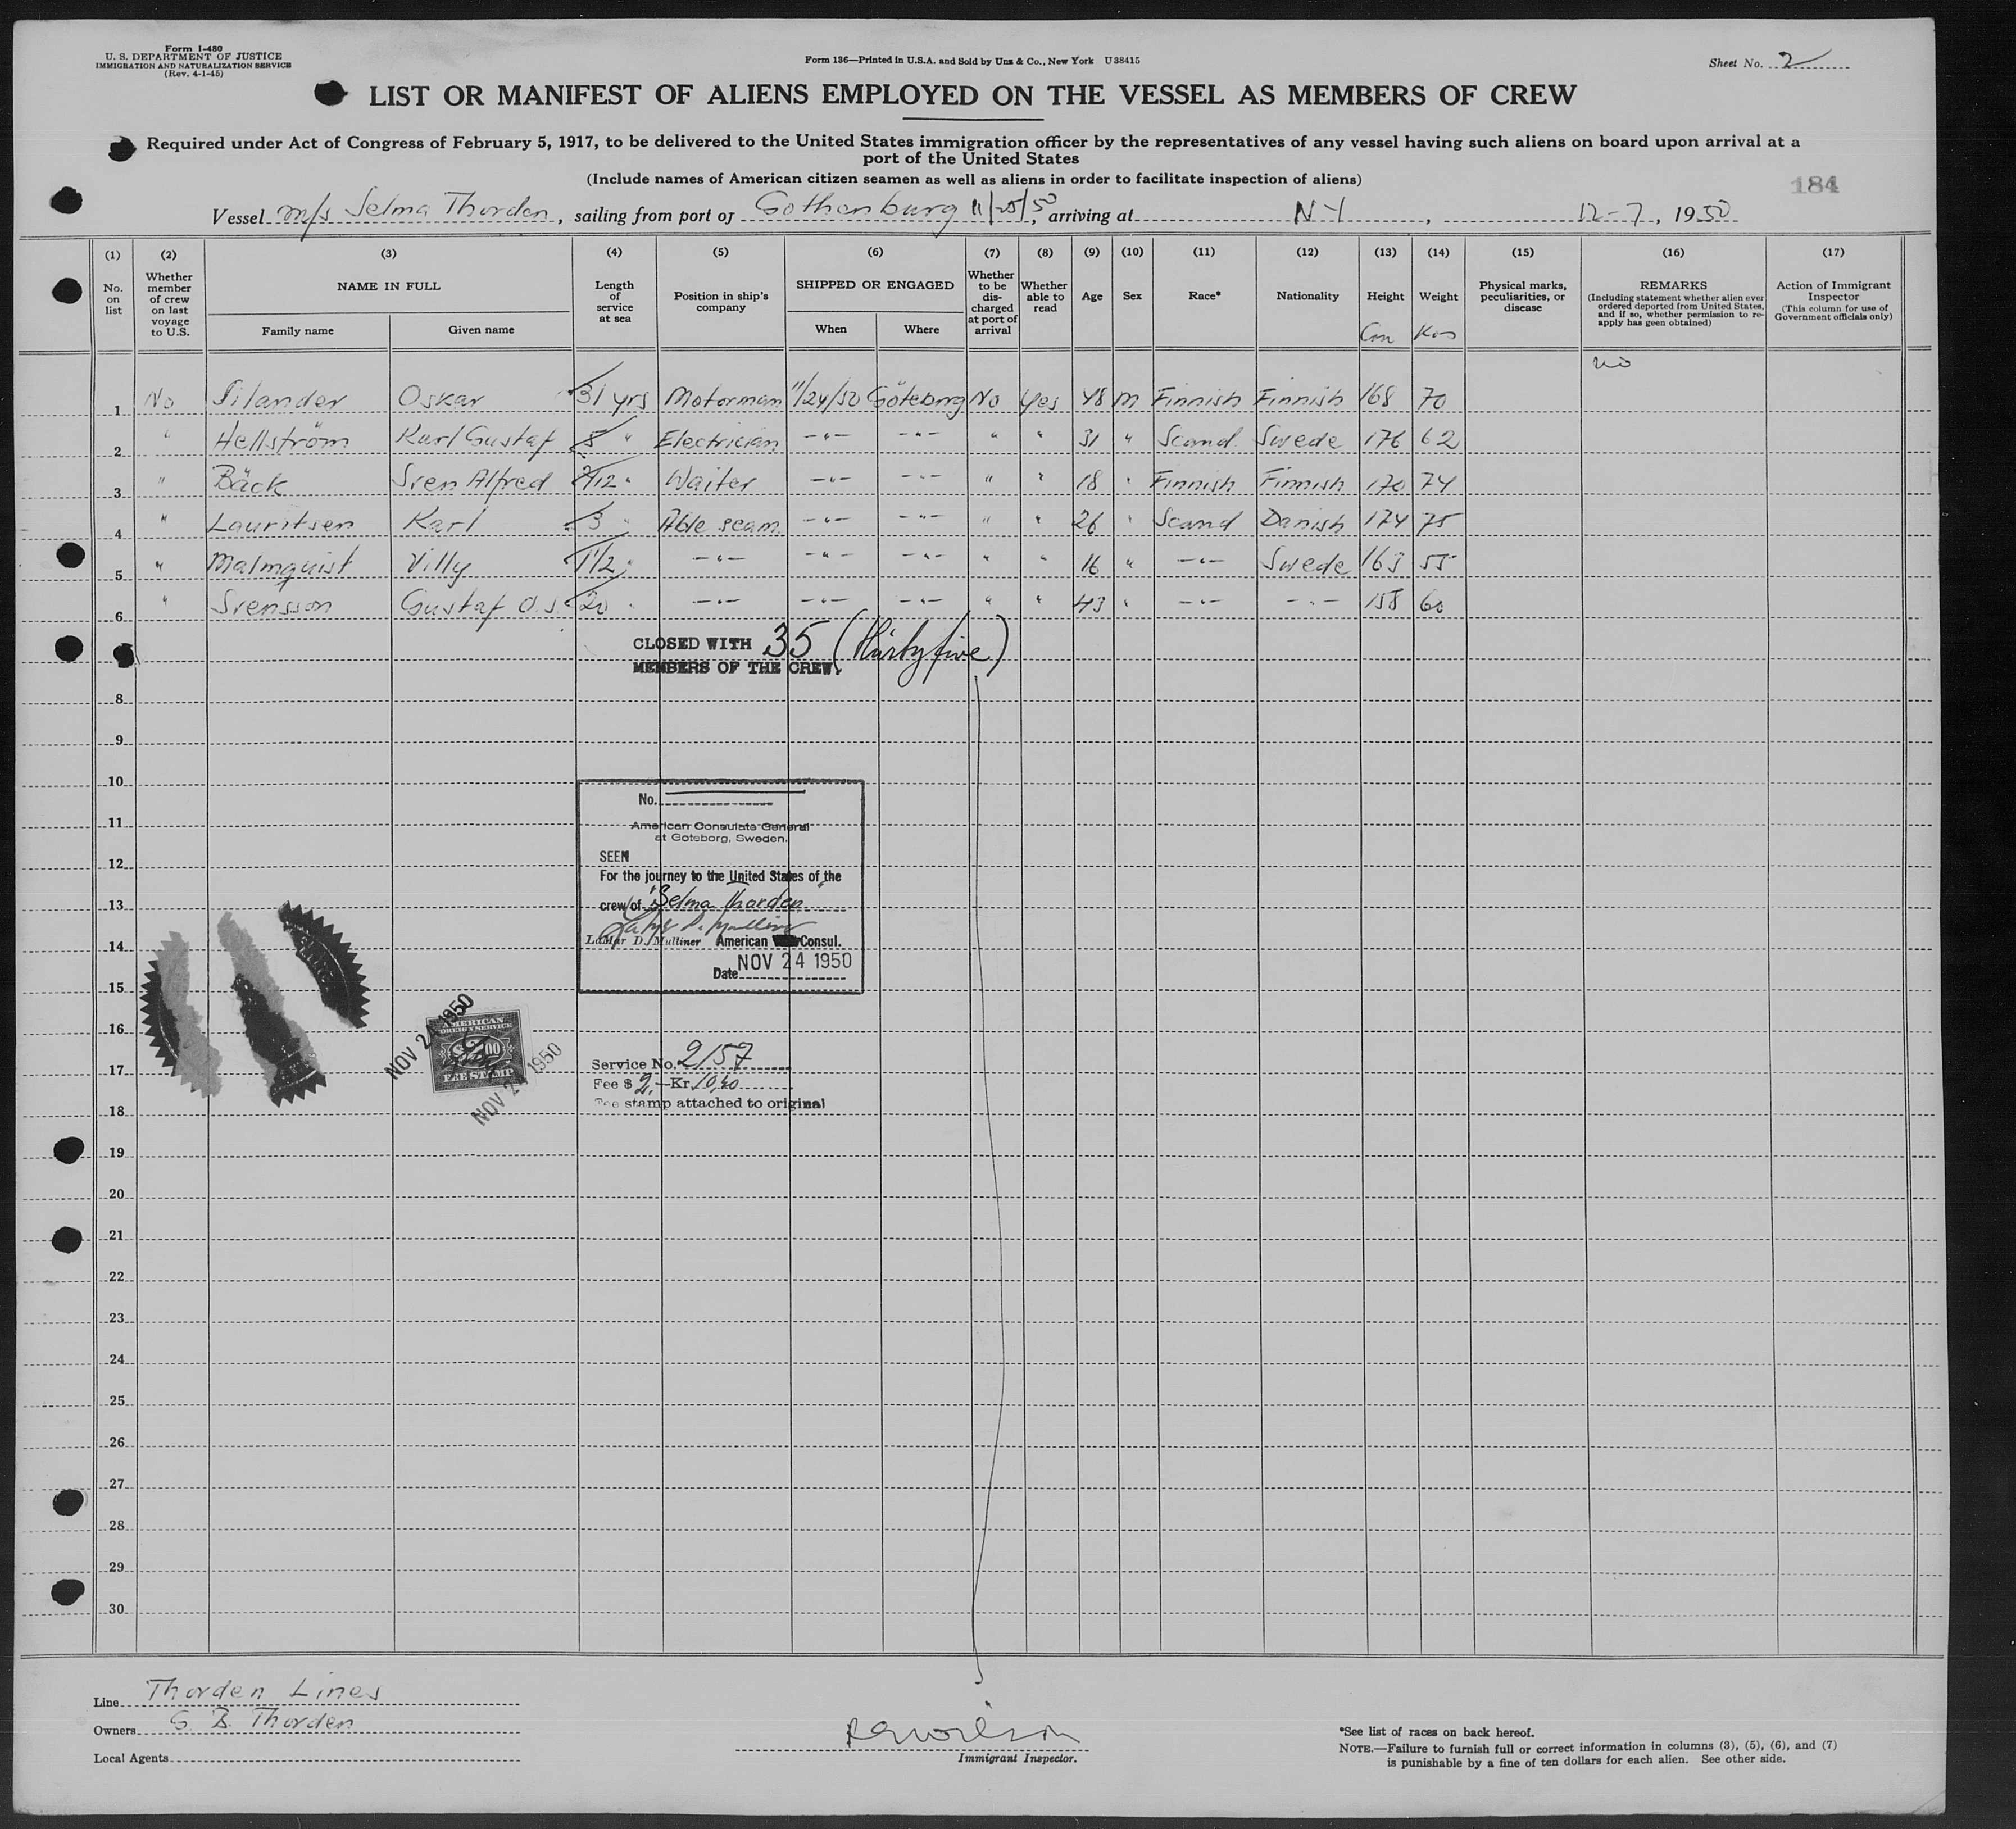 Form I-480
U. S. DEPARTMENT OF JUSTICE
IMMIGRATION AND NATURALIZATION SERVICE
(Rev. 4-1-45)
Form 136—Printed in U.S.A. and Sold by Unz & Co., New York U 38415
Sheet No. 2
LIST OR MANIFEST OF ALIENS EMPLOYED ON THE VESSEL AS MEMBERS OF CREW
Required under Act of Congress of February 5, 1917, to be delivered to the United States immigration officer by the representatives of any vessel having such aliens on board upon arrival at a
port of the United States
(Include names of American citizen seamen as well as aliens in order to facilitate inspection of aliens)
184
Vessel m/s Selma Thorden, sailing from port of Gothenburg 11/25/50, arriving at N-Y, 12-7, 1950
(1) (2) (3) (4) (5) (6) (7) (8) (9) (10) (11) (12) (13) (14) (15) (16) (17)
No. on list
Whether member of crew on last voyage to U.S.
NAME IN FULL
Family name
Given name
Length of service at sea
Position in ship's company
SHIPPED OR ENGAGED
When
Where
Whether to be discharged at port of arrival
Whether able to read
Age
Sex
Race*
Nationality
Height
Cm
Weight
Kos
Physical marks, peculiarities, or disease
REMARKS
(Including statement whether alien ever ordered deported from United States, and if so, whether permission to re-apply has geen obtained)
Action of Immigrant Inspector
(This column for use of Government officials only)
no
1 No Silander Oskar 31 yrs Motorman 11/24/50 Göteborg No Yes 48 m Finnish Finnish 168 70
2 " Hellström Karl Gustaf 8 " Electrician -"- -"- " " 31 " Scand. Swede 176 62
3 " Bäck Sven Alfred /12 " Waiter -"- -"- " " 18 " Finnish Finnish 170 74
4 " Lauritsen Karl 3 " Able seam. -"- -"- " " 26 " Scand Danish 174 75
5 " Malmquist Villy 1 1/2 " -"- -"- -"- " " 16 " -"- Swede 163 55
6 " Svensson Gustaf O.S. 20 " -"- -"- -"- " " 43 " -"- -"- 158 60
CLOSED WITH 35 (Thirtyfive)
MEMBERS OF THE CREW.
8
9
10
11
12
13
14
15
16
17
18
19
20
21
22
23
24
25
26
27
28
29
30
No.
American Consulate General
at Goteborg, Sweden.
SEEN
For the journey to the United States of the
crew of "Selma Thorden"
LaMar D. Mulliner
LaMar D. Mulliner American Consul.
Date NOV 24 1950
NOV 24 1950
AMERICAN
FOREIGN SERVICE
FEE STAMP
NOV 24 1950
Service No. 2157
Fee $ 2,— Kr. 10,40
Fee stamp attached to original
Line Thorden Lines
Owners G. B. Thorden
Local Agents
Immigrant Inspector.
*See list of races on back hereof.
NOTE.—Failure to furnish full or correct information in columns (3), (5), (6), and (7)
is punishable by a fine of ten dollars for each alien. See other side.